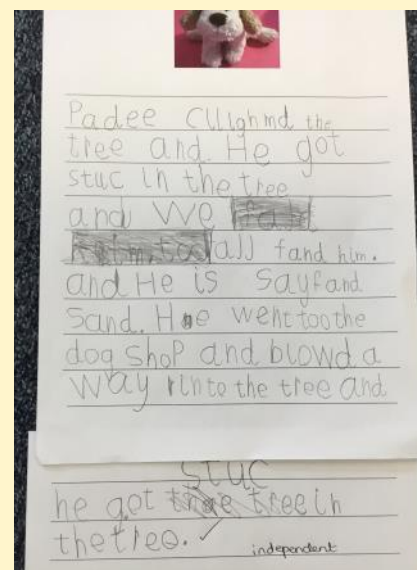 Padee cllighmd the
tree and He got
stuc in the tree
and we
all fand him.
and He is Sayfand
Sand. He went too the
dog shop and blowd a
way rinto the tree and
stuc
he got in
the tree.
independent